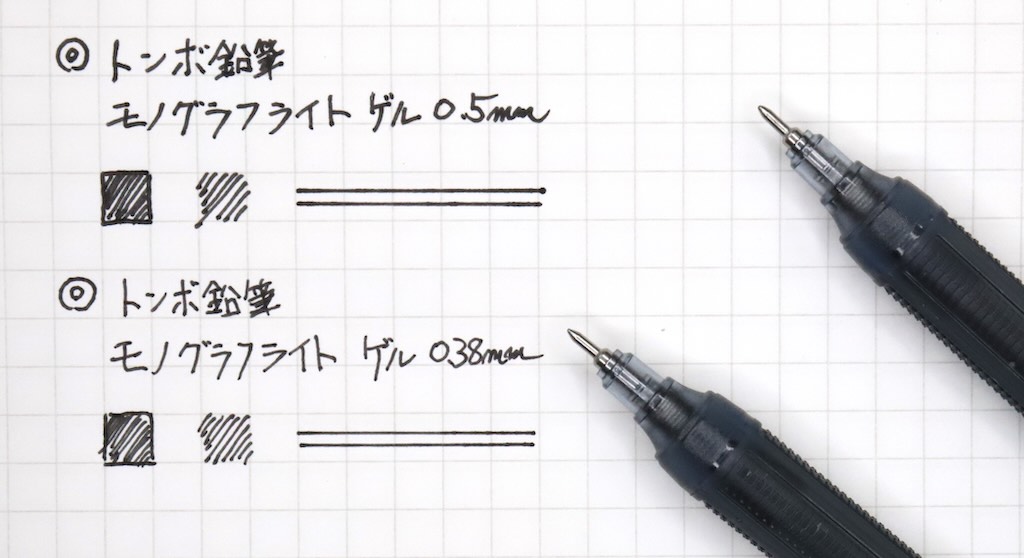 ◎ トンボ鉛筆
モノグラフライト ゲル 0.5mm
◎ トンボ鉛筆
モノグラフライト ゲル 0.38mm